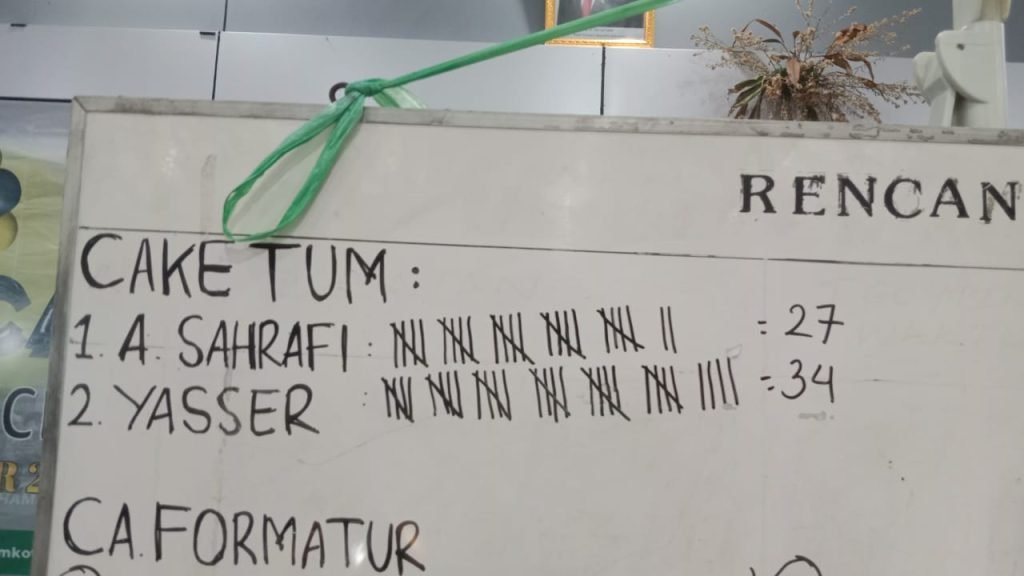 RENCAN
CAKETUM :
1. A. SAHRAFI : = 27
2. YASSER : = 34
CA. FORMATUR